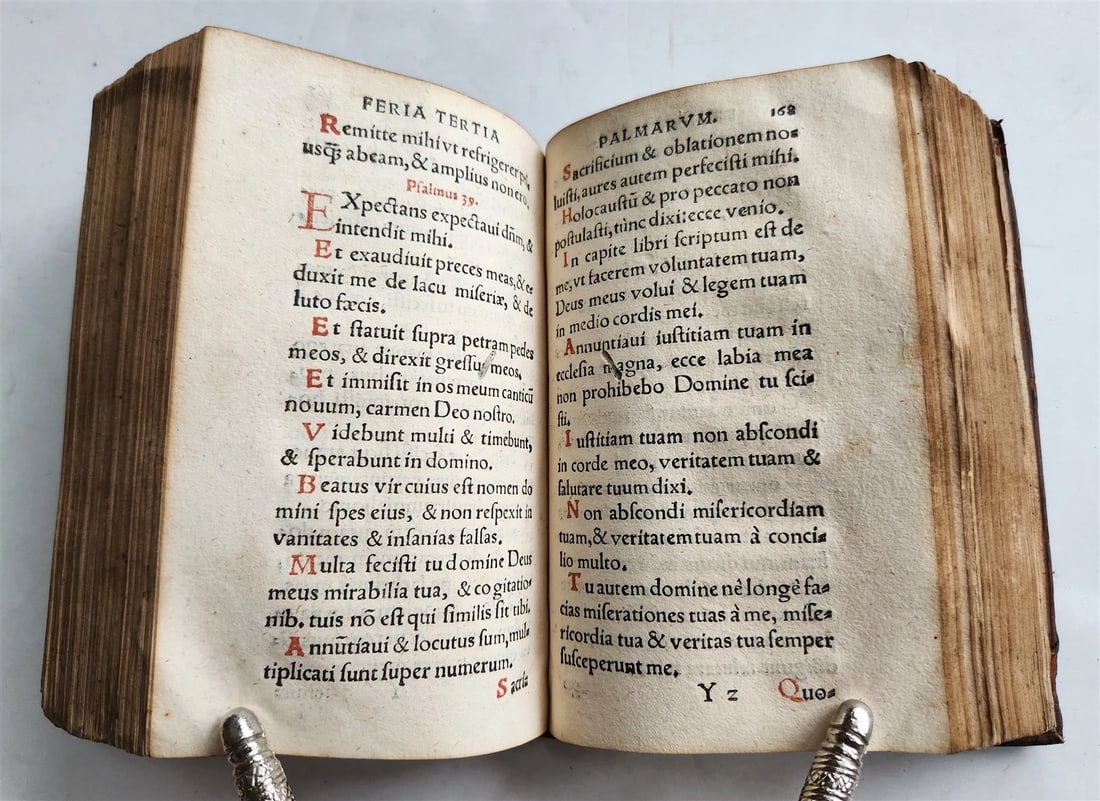 FERIA TERTIA
Remitte mihi vt refrigerer priꝰ,
usq̃ꝫ abeam, & amplius non ero.
Psalmus 39.
EXpectans expectaui dñm, &
intendit mihi.
Et exaudiuit preces meas, & e
duxit me de lacu miseriæ, & de
luto fæcis.
Et statuit supra petram pedes
meos, & direxit gressus meos.
Et immisit in os meum canticũ
nouum, carmen Deo nostro.
Videbunt multi & timebunt,
& sperabunt in domino.
Beatus vir cuius est nomen do
mini spes eius, & non respexit in
vanitates & insanias falsas.
Multa fecisti tu domine Deus
meus mirabilia tua, & cogitatio-
nib. tuis nõ est qui similis sit tibi.
Annũtiaui & locutus sum, mul-
tiplicati sunt super numerum.
Sacri-
PALMARVM. 168
Sacrificium & oblationem no-
luisti, aures autem perfecisti mihi.
Holocaustũ & pro peccato non
postulasti, tùnc dixi: ecce venio.
In capite libri scriptum est de
me, vt facerem voluntatem tuam,
Deus meus volui & legem tuam
in medio cordis mei.
Annuntiaui iustitiam tuam in
ecclesia magna, ecce labia mea
non prohibebo Domine tu sci-
sti.
Iustitiam tuam non abscondi
in corde meo, veritatem tuam &
salutare tuum dixi.
Non abscondi misericordiam
tuam, & veritatem tuam à conci-
lio multo.
Tu autem domine nè longè fa-
cias miserationes tuas à me, mise-
ricordia tua & veritas tua semper
susceperunt me.
Y z Quo-